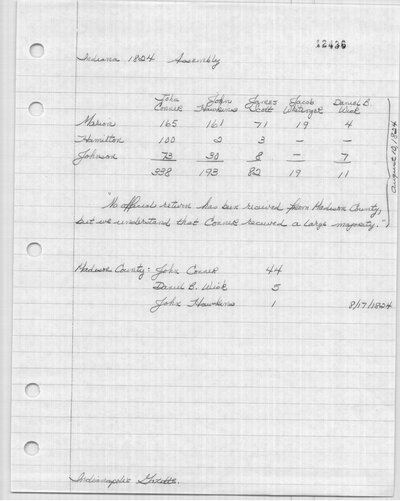 12496
Indiana 1824 Assembly
John Conner John Hawkins James Scott Jacob Whitzinger Daniel B. Wick
Marion 165 161 71 19 4
Hamilton 100 2 3 — —
Johnson 73 30 8 — 7
338 193 82 19 11
August 10, 1824
"No official return has been received from Madison County,
but we understand that Conner received a large majority."
Madison County: John Conner 44
Daniel B. Wick 5
John Hawkins 1 8/17/1824
Indianapolis Gazette.